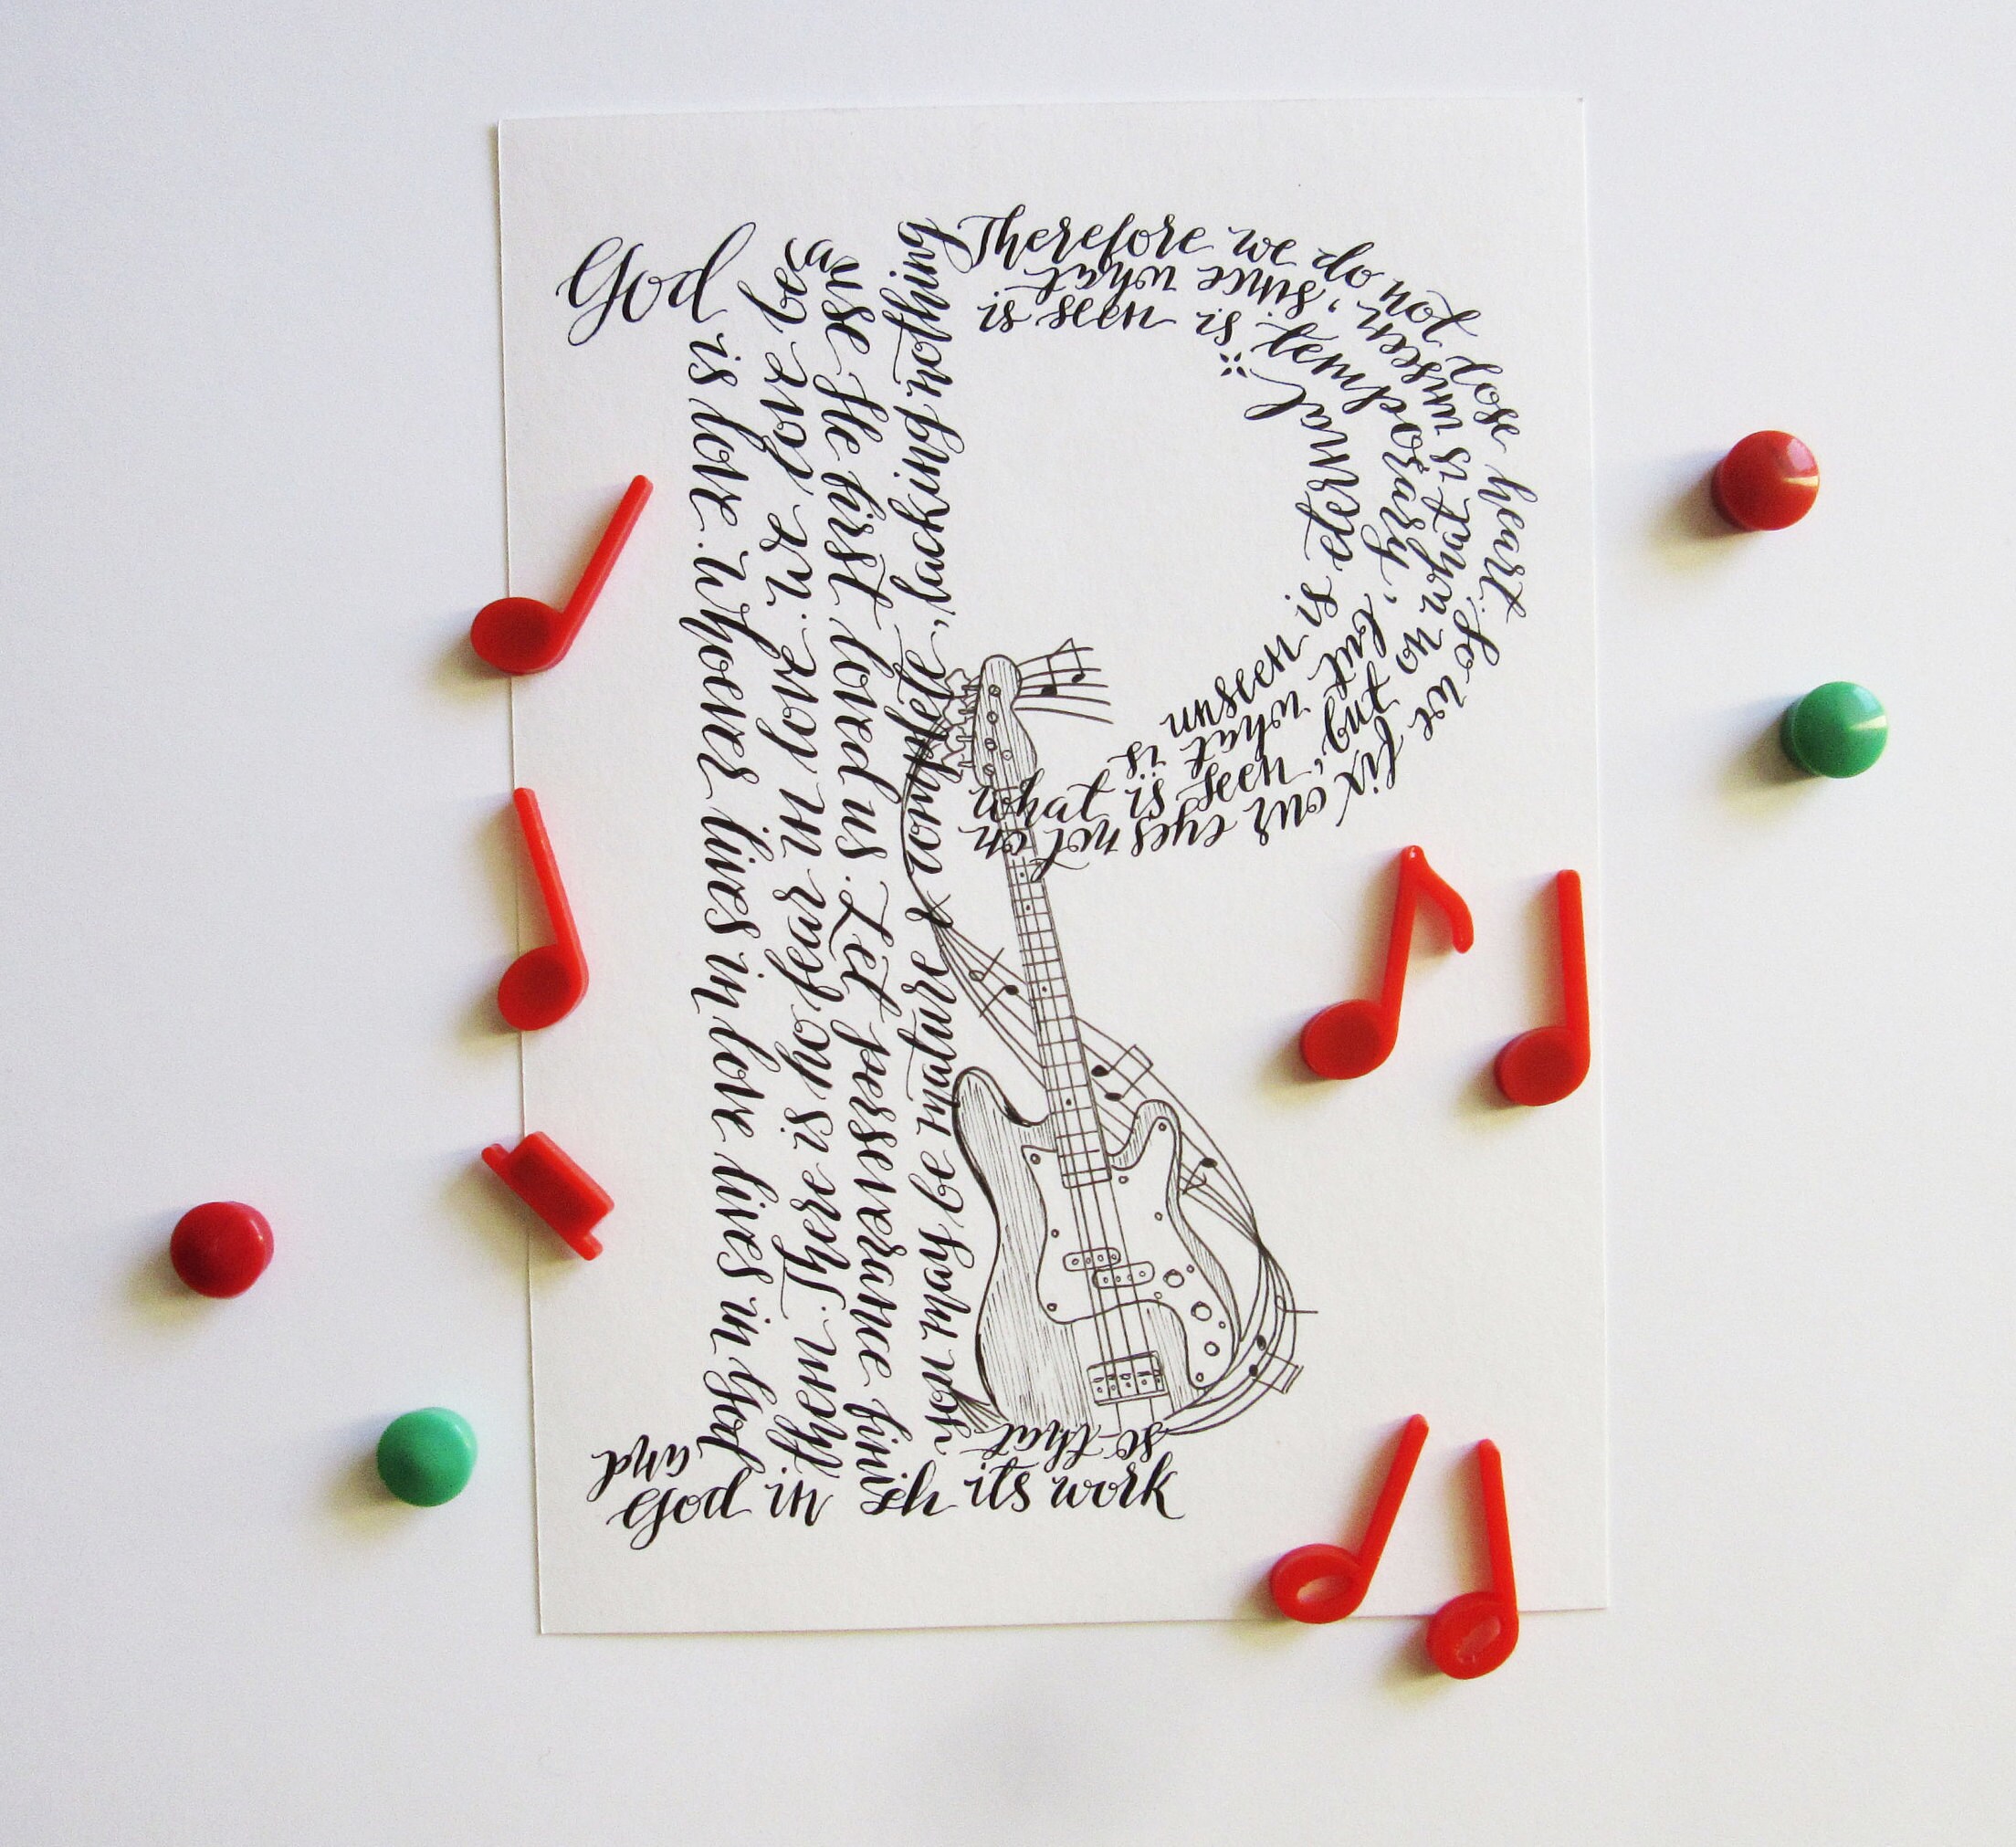 God
is love. Whoever lives in love lives in God
and
God in
them. There is no fear in love. We love be-
cause He first loved us. Let perseverance finish
its work
so that
you might be mature & complete, lacking nothing.
Therefore we do not lose heart. So we fix our eyes not on
what is seen, but on what is unseen, since what
is seen is temporary, but what is
unseen is eternal